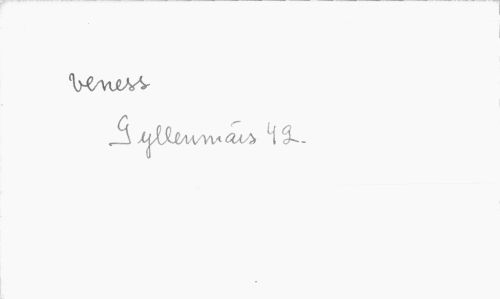 veness
Gyllenmårs 42.